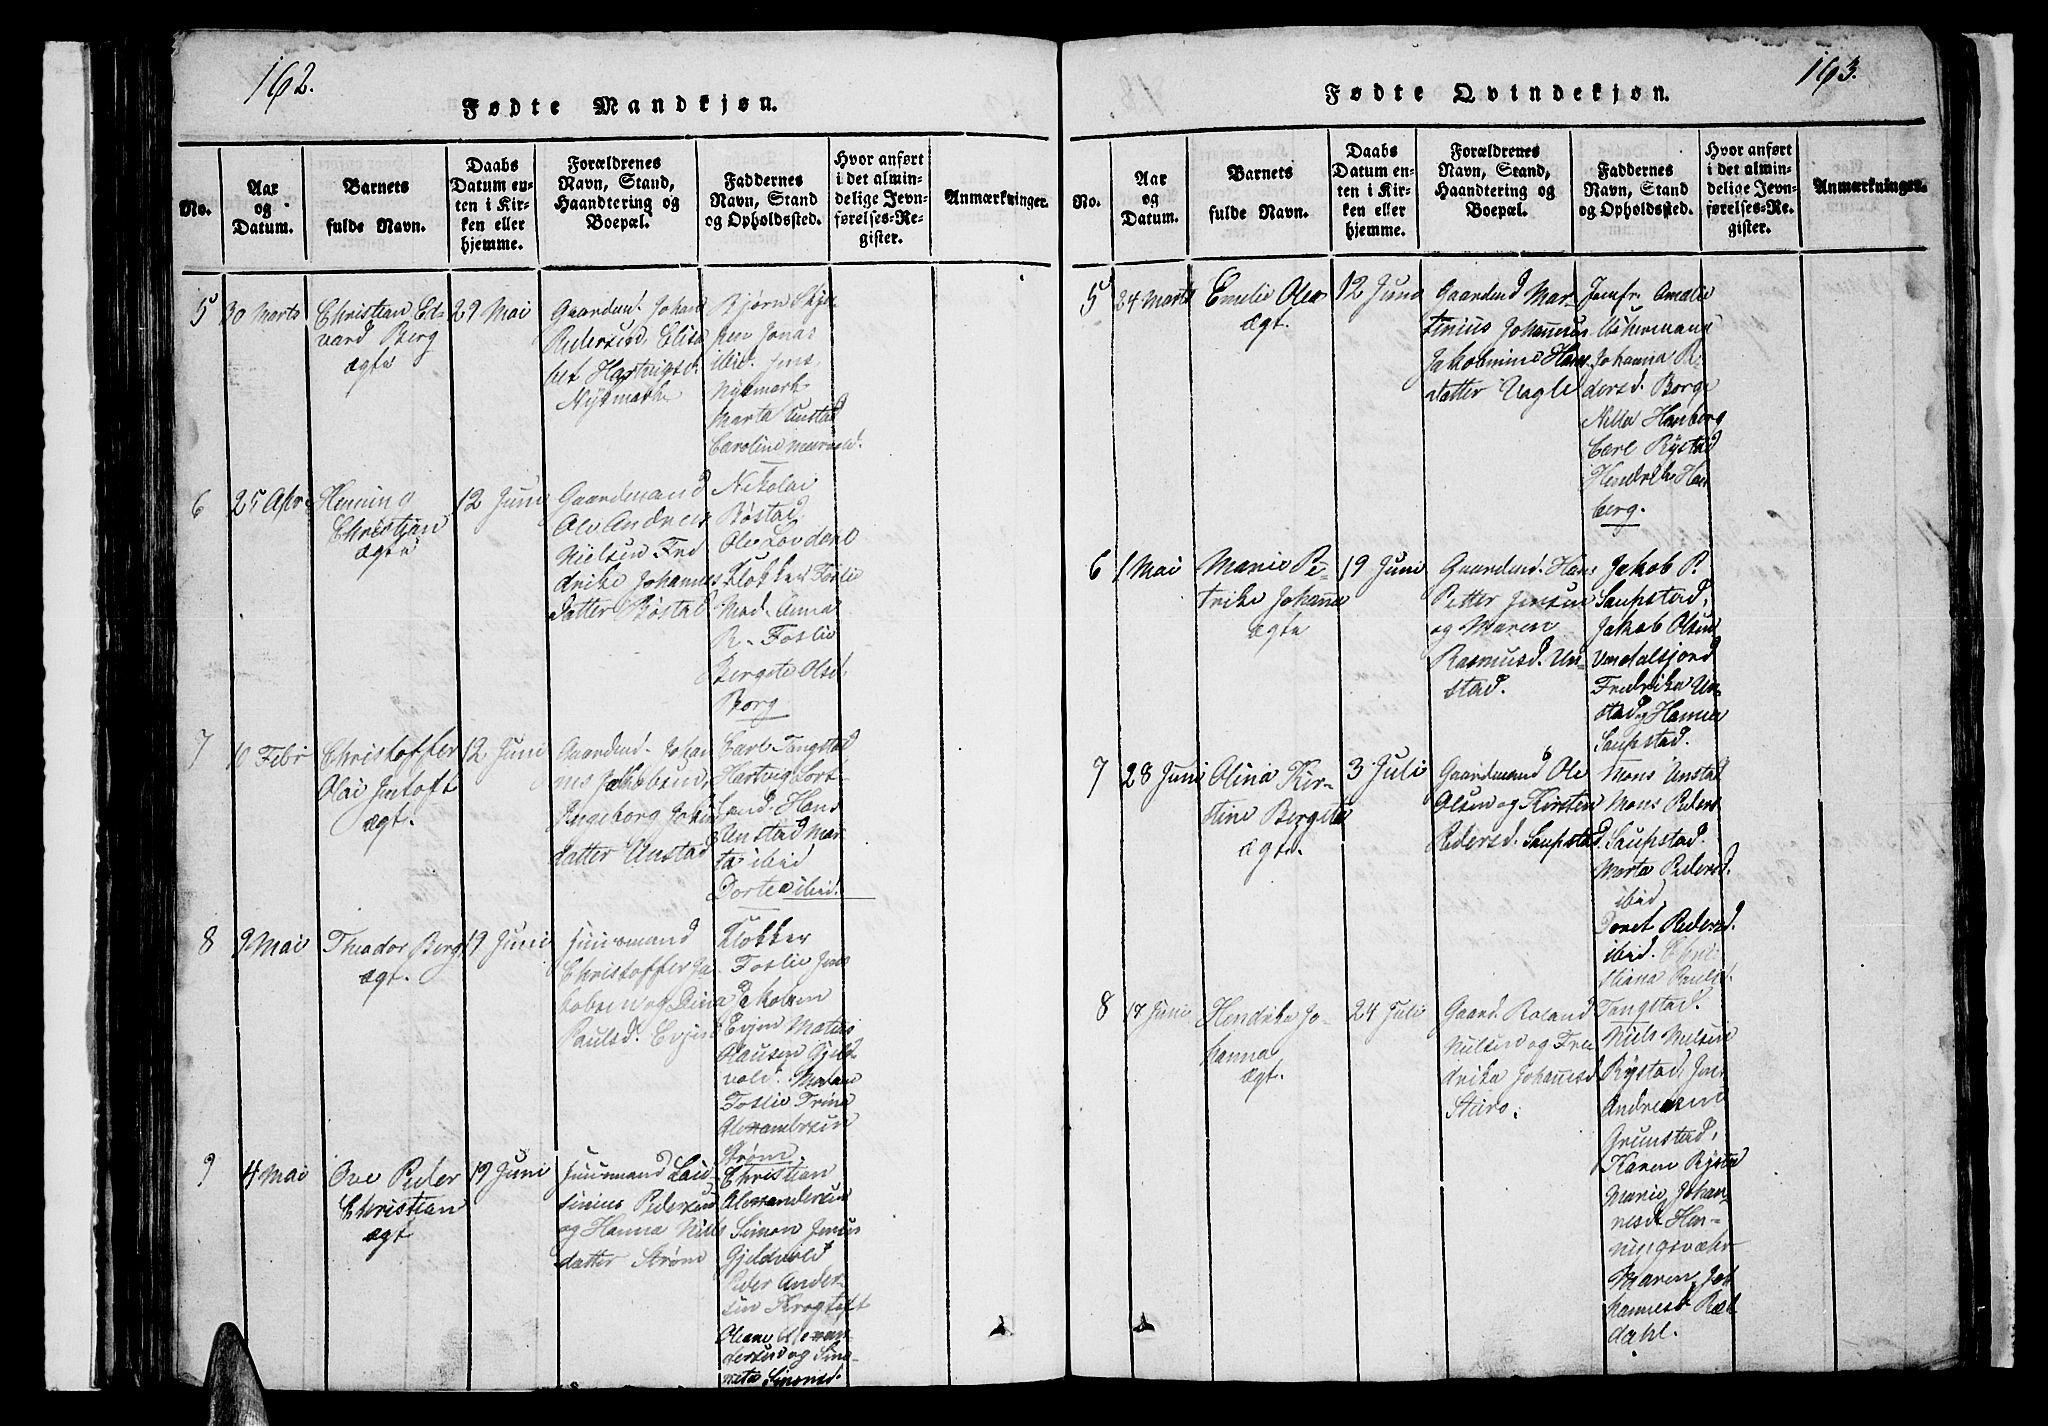 162.
Fødte Mandkjøn.
No.
Aar
og
Datum.
Barnets
fulde Navn.
Daabs
Datum en-
ten i Kir-
ken eller
hjemme.
Forældrenes
Navn, Stand,
Haandtering og
Boepæl.
Faddernes
Navn, Stand
og Opholdssted.
Hvor anført
i det almin-
delige Jevn-
førelses-Re-
gister.
Anmærkninger.
5
30 Marts
Christian Ed-
vard Berg
ægte
29 Mai
Gaardmd. Johan
Pedersen, Elisa
bet Hartvigsd.
Nykmarke
Bjørn
Jonas
ibid. Jens
Nykmark
Marta Unstad
Caroline
6
25 Apr
Henning
Christjan
ægte
12 Juni
Gaardmand
Ole Andreas
Nielsen Fre
drike Johannes
datter Bøstad
Nikolai
Bøstad
Ole Lovdahl
Klokker Foslie
Mad. Anna
R. Foslie
Bergete Olsd.
Borg
7
10 Febr
Christoffer
Olai Jentoft
ægt.
12 Juni
Gaardmd. Johan
nes Jakobsen,
Ingeborg Johns
datter Unstad
Carl Tangstad
Hartvig Sort
land. Hans
Unstad Mar
ta ibid
Dortea ibid.
8
9 Mai
Theador Berg
ægt.
19 Juni
Huusmand
Christoffer Ja
kobsen og Dina
Paulsd. Evjen
Klokker
Foslie Jens
Jakobsen
Evjen Matias
Clausen Gjeld-
vold. Malene
Foslie Trina
Alexandersen
Strøm.
9
4 Mai
Ove Peder
Christian
ægt
19 Juni
Huusmand Lau-
sinius Pedersen
og Hanna Niels
datter Strøm
Christian
Alexandersen
Simon Jensen
Gjeldvold
Peder Ander-
sen Krogtoft
Oleane Alexan-
dersen og Sino-
neta Simonsd.
163.
Fødte Qvindekjøn.
No.
Aar
og
Datum.
Barnets
fulde Navn.
Daabs
Datum en-
ten i Kir-
ken eller
hjemme.
Forældrenes
Navn, Stand,
Haandtering og
Boepæl.
Faddernes
Navn, Stand
og Opholdssted.
Hvor anført
i det almin-
delige Jevn-
førelses-Re-
gister.
Anmærkninger.
5
24 Marts
Emelie Olea
ægt.
12 Juni
Gaardmd Mar-
tinius Johannesen
Jakobmine Hans
datter Vagle
Jomfr. Amalie
Johanna Pe
dersd. Borge
Nilla Hanberg
Carl Rystad
Hendrik Han
berg.
6
1 Mai
Marie Pe-
trike Johanna
ægte
19 Juni
Gaardmd. Hans
Petter Jensen
og Maren
Rasmusd. Un-
stad.
Jakob P.
Saupstad,
Jakob Olsen
Vendalsjord
Fredrika Un-
stad og Hanna
Saupstad.
7
28 Juni
Olina Kir-
stine Bergitta
ægte.
3 Juli
Gaardmand Ole
Olsen og Kirsten
Pedersd. Saupstad
Mons Unstad
Mons Peders
Saupstad.
Marta Pedersd.
ibid
Doret Pedersd.
ibid. Chri-
stiana Paulsd.
Tangstad.
8
17 Juni
Hendrika Jo-
hanna
ægt.
24 Juli
Gaard. Roland
Nilsen og Fre
drika Johannesd
Steiro.
Niels Nielsen
Rystad, Jens
Andreasen
Grunstad,
Karen Rystad
Marie Johan-
nesd Hen-
ningsvæhr
Maren Jo
hannesd Røl
dahl.